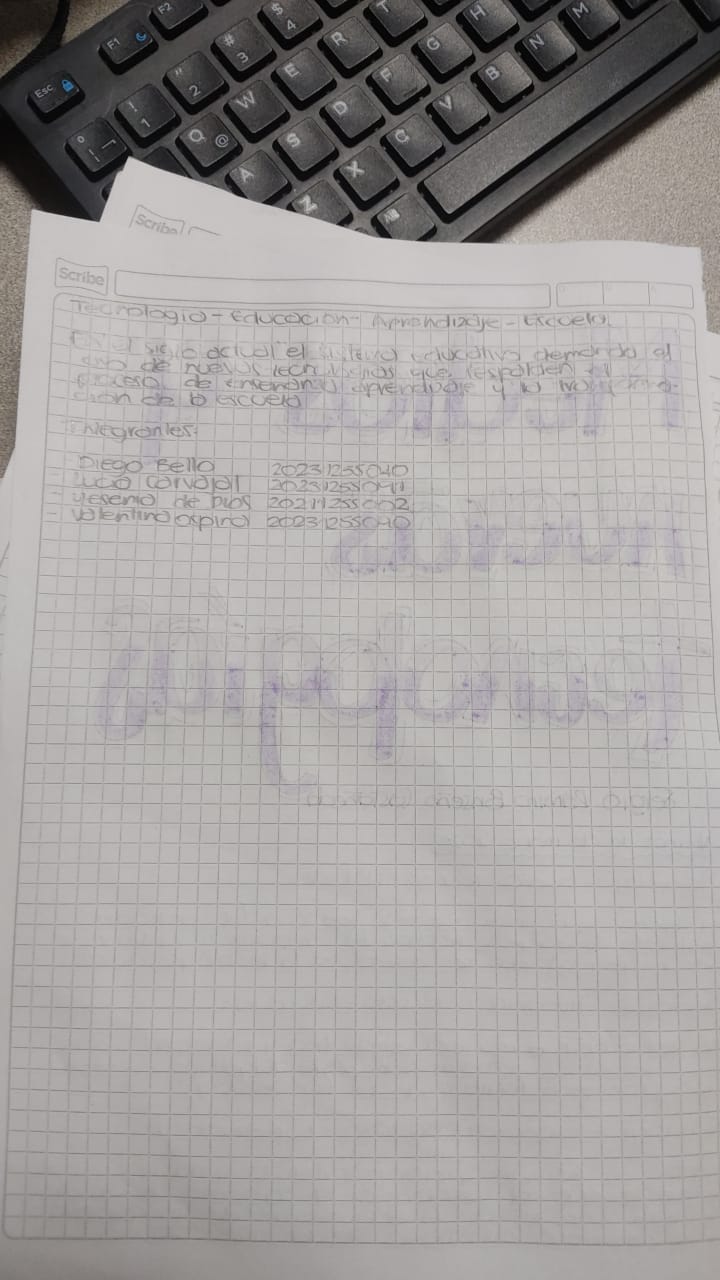 Esc
F1
F2
!
1
"
2
#
3
$
4
Q @
W
E
R
T
A
S
D
F
G
H
Z
X
C
V
B
N
M
Alt
Scribe
Scribe
Tecnologia - Educacion - Aprendizaje - Escuela
En el siglo actual el sistema educativo demanda el
uso de nuevas tecnologias que respalden el
proceso de enseñanza aprendizaje y la
cion de la escuela
Integrantes:
- Diego Bello 20231255040
- Lucia Carvajal
- Yesenia de Dios 20211255002
- Valentina ospina 20231255040